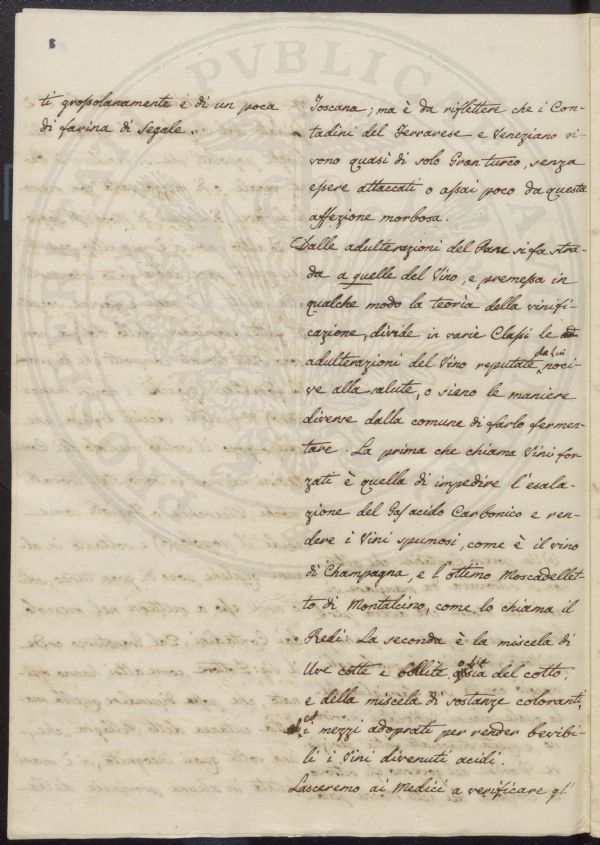 ti gropolanamente e di un poca
di farina di Segale.
Toscana; ma è da riflettere che i Con-
tadini del Ferrarese e Veneziano vi
vono quasi di solo Gran turco, senza
essere attaccati o assai poco da questa
affezione morbosa.
Dalle adulterazioni del Pane si fa stra-
da a quelle del Vino, e premessa in
qualche modo la teoria della vinifi-
cazione, divide in varie Classi le
adulterazioni del Vino reputate da lui noci-
ve alla salute, o sieno le maniere
diverse dalla comune di farlo fermen-
tare. La prima che chiama Vini for
zati è quella di impedire l'esala-
zione del Gas acido Carbonico e ren-
dere i Vini spumosi, come è il vino
di Champagna, e l'ottimo Moscadellet-
to di Montalcino, come lo chiama il
Redi: La seconda è la miscela di
Uve cotte e bollite, ossia del cotto;
e della miscela di sostanze coloranti,
ed i mezzi adoprati per render bevibi-
li i Vini divenuti acidi.
Lasceremo ai Medici a verificare gl'